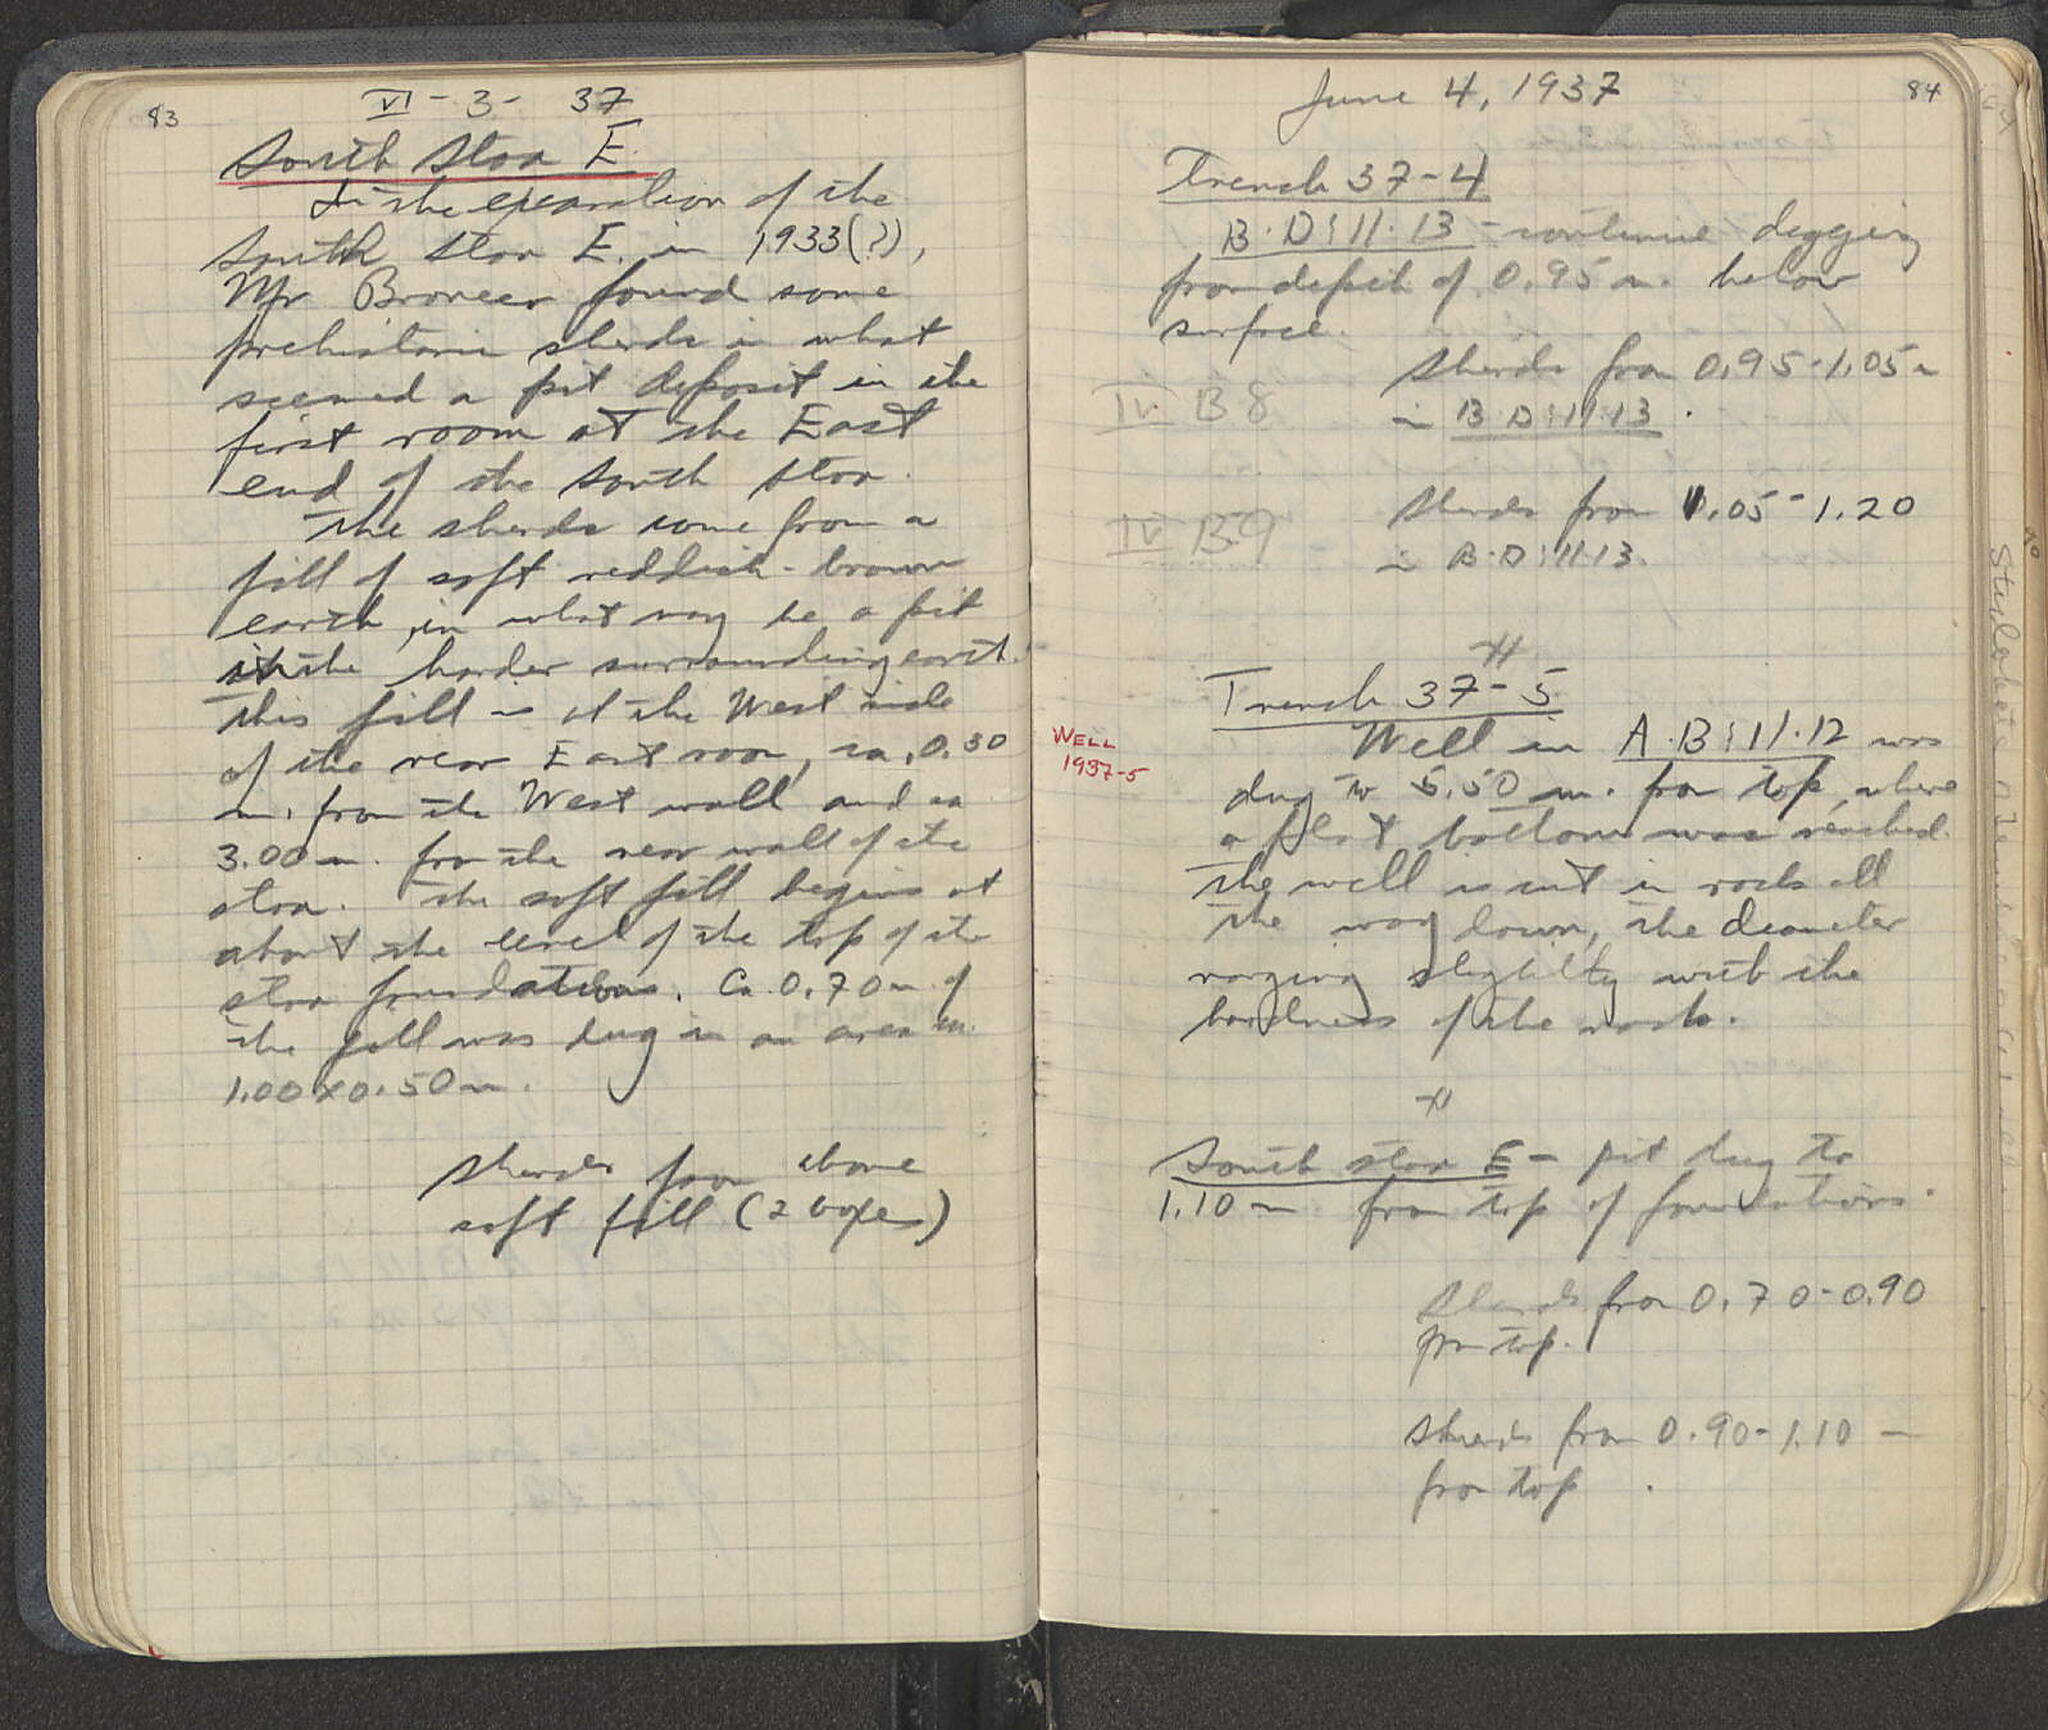 83
VI - 3 - 37
South Stoa E.
In the excavation of the
South Stoa E. in 1933(?),
Mr Broneer found some
prehistoric sherds in what
seemed a pit deposit in the
first room at the East
end of the South Stoa.
The sherds come from a
fill of soft reddish-brown
earth, in what may be a pit
in the harder surrounding earth.
This fill is at the West side
of the rear East room, ca. 0.30
m. from the West wall and ca
3.00 m. from the rear wall of the
stoa. The soft fill begins at
about the level of the top of the
stoa foundations. Ca. 0.70 m of
the fill was dug in an area
1.00 x 0.50 m.
Sherds from above
soft fill (2 boxes)
84
June 4, 1937
Trench 37-4
B·D:11·13 - continue digging
from depth of 0.95 m. below
surface.
Sherds from 0.95-1.05 m
IV. B 8
in B·D:11·13.
Sherds from 1.05-1.20
IV B9
in B·D:11·13.
Trench 37-5
WELL
1937-5
Well in A·B:11·12 was
dug to 5.50 m. from top, where
a flat bottom was reached.
The well is cut in rock all
the way down, the diameter
varying slightly with the
hardness of the rock.
South Stoa E - pit dug to
1.10 m from top of foundations.
Sherds from 0.70-0.90
from top.
Sherds from 0.90-1.10 m
from top.